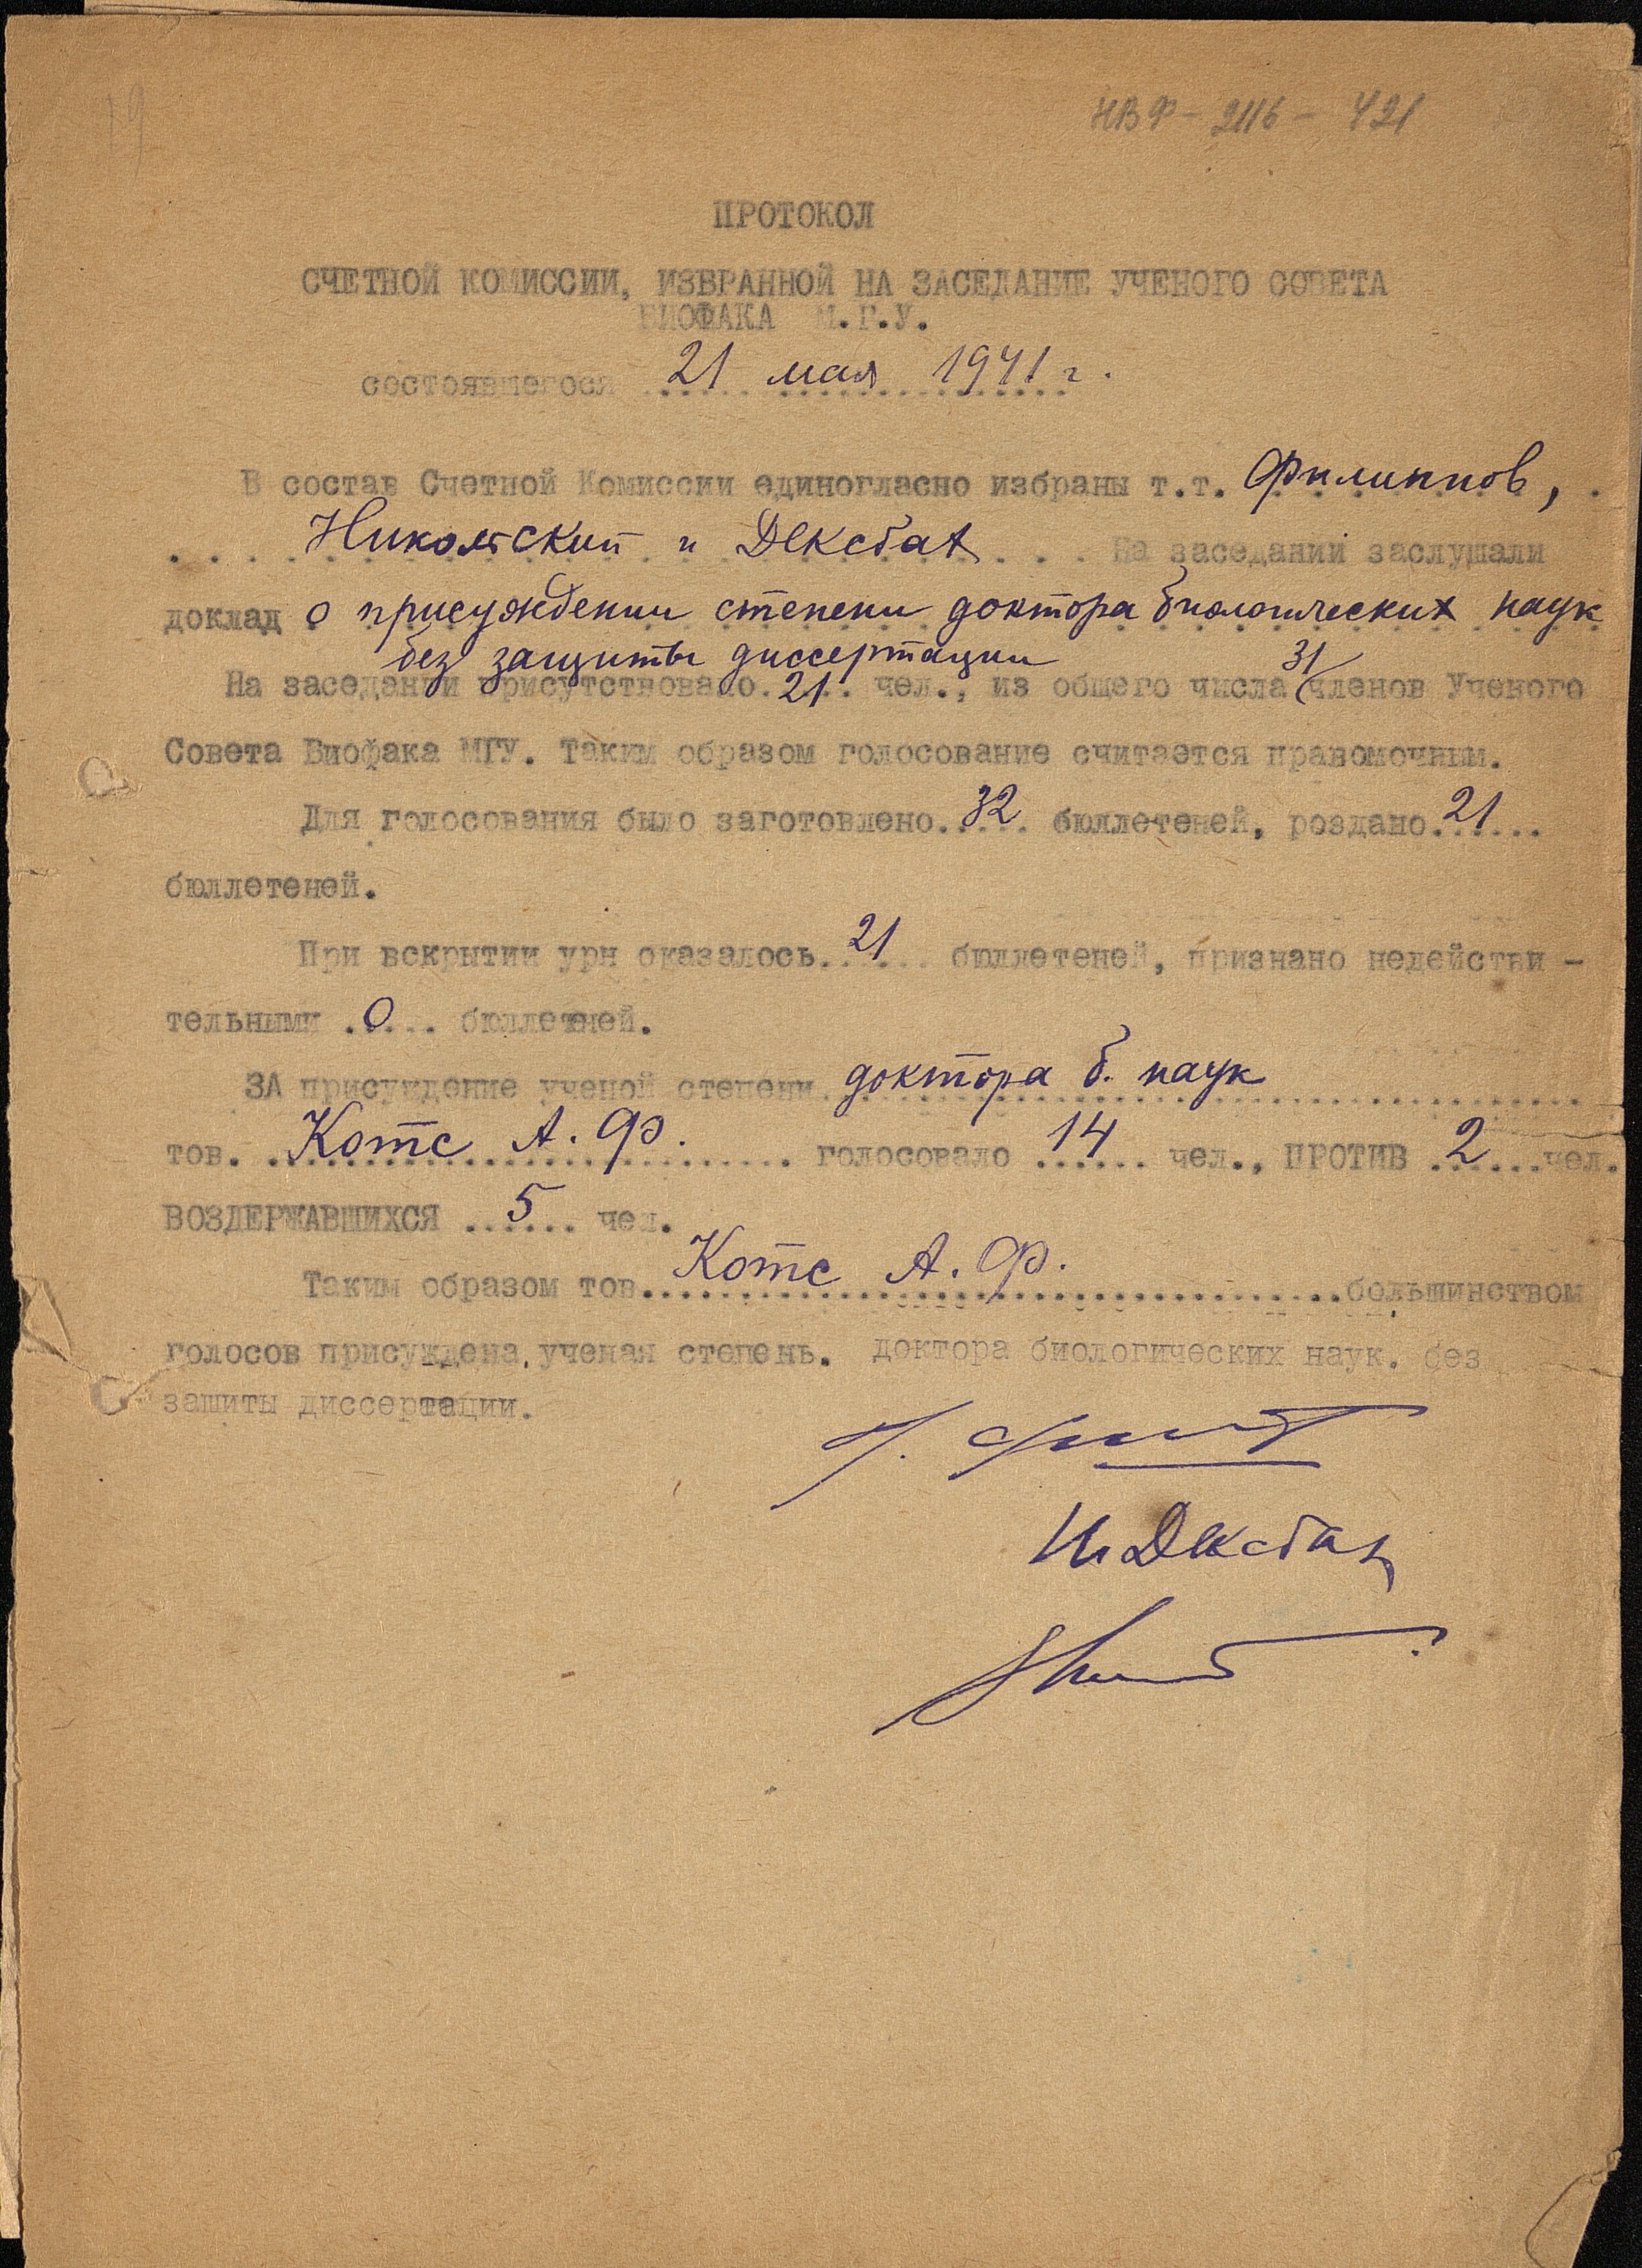 19
НВФ - 2116 - 421
ПРОТОКОЛ
СЧЕТНОЙ КОМИССИИ, ИЗБРАННОЙ НА ЗАСЕДАНИЕ УЧЕНОГО СОВЕТА
БИОФАКА М.Г.У.
состоявшегося 21 мая 1941 г.
В состав Счетной Комиссии единогласно избраны т.т. Филиппов,
Никольский и Дексбах На заседании заслушали
доклад о присуждении степени доктора биологических наук
без защиты диссертации
На заседании присутствовало 21 чел., из общего числа 31 членов Ученого
Совета Биофака МГУ. Таким образом голосование считается правомочным.
Для голосования было заготовлено 32 бюллетеней, роздано 21
бюллетеней.
При вскрытии урн оказалось 21 бюллетеней, признано недействи -
тельными 0 бюллетней.
ЗА присуждение ученой степени доктора б. наук
тов. Котс А. Ф. голосовало 14 чел., ПРОТИВ 2 чел.
ВОЗДЕРЖАВШИХСЯ 5 чел.
Таким образом тов. Котс А. Ф. большинством
голосов присуждена ученая степень. доктора биологических наук. без
защиты диссертации.
Н. Дексбах